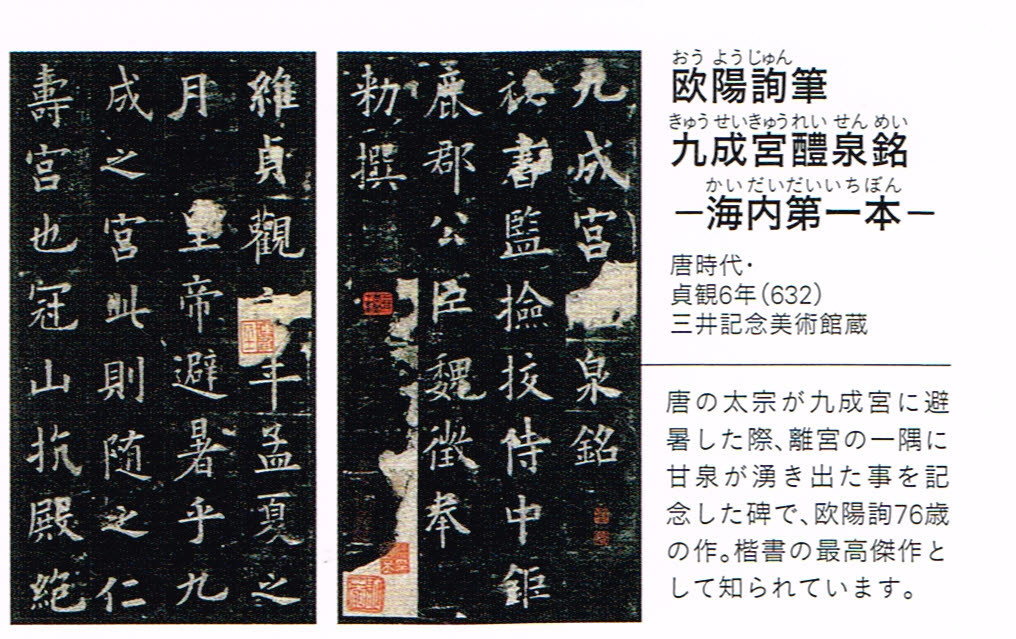 おうようじゅん
欧陽詢筆
きゅうせいきゅうれいせんめい
九成宮醴泉銘
かいだいだいいちぼん
−海内第一本−
唐時代・
貞観6年（632）
三井記念美術館蔵
唐の太宗が九成宮に避
暑した際、離宮の一隅に
甘泉が湧き出た事を記
念した碑で、欧陽詢76歳
の作。楷書の最高傑作と
して知られています。
九成宮泉銘
秘書監撿挍侍中鉅
鹿郡公臣魏徵奉
勑撰
維貞觀年孟夏之
月皇帝避暑乎九
成之宮此則随之仁
壽宮也冠山抗殿絶